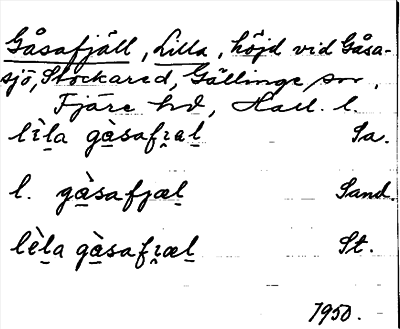 Gåsafjäll, Lilla, höjd vid Gåsa-
sjö, Stockared, Gällinge sn,
Fjäre hd, Hall. l.
lìla gàsafjæl Sa.
l. gàsafjæl Sand.
lèla gàsafjæl St.
1950.